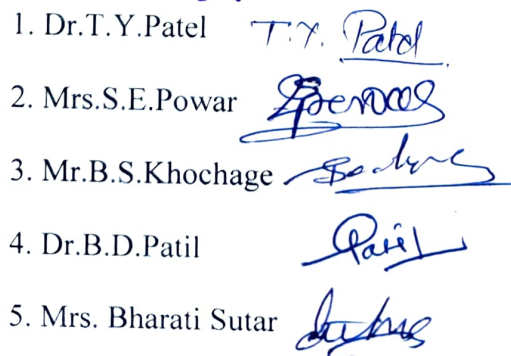 1. Dr.T.Y.Patel T.Y. Patel
2. Mrs.S.E.Powar
3. Mr.B.S.Khochage
4. Dr.B.D.Patil Patil
5. Mrs. Bharati Sutar